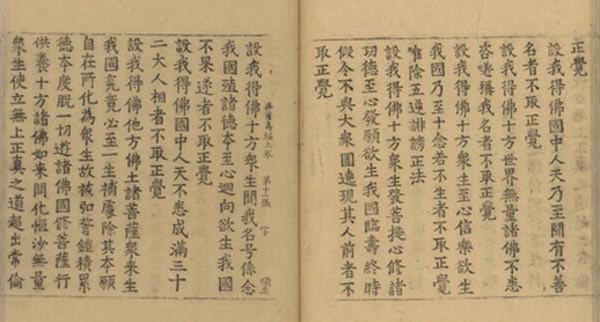 正覺
設我得佛國中人天乃至聞有不善
名者不取正覺
設我得佛十方世界無量諸佛不悉
咨嗟稱我名者不取正覺
設我得佛十方衆生至心信樂欲生
我國乃至十念若不生者不取正覺
唯除五逆誹謗正法
設我得佛十方衆生發菩提心修諸
功德至心發願欲生我國臨壽終時
假令不與大衆圍遶現其人前者不
取正覺
無量壽經上卷 第十 張 字
設我得佛十方衆生聞我名号係念
我國殖諸德本至心迴向欲生我國
不果遂者不取正覺
設我得佛國中人天不悉成滿三十
二大人相者不取正覺
設我得佛他方佛土諸菩薩衆來生
我國究竟必至一生補處除其本願
自在所化為衆生故被弘誓鎧積累
德本度脫一切遊諸佛國修菩薩行
供養十方諸佛如來開化恒沙無量
衆生使立無上正真之道超出常倫